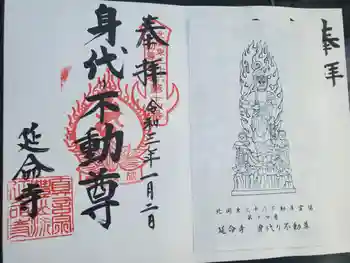 奉拝
令和三年一月二日
身代り不動尊
延命寺
奉拝
北関東三十六不動尊霊場
延命寺 身代り不動尊